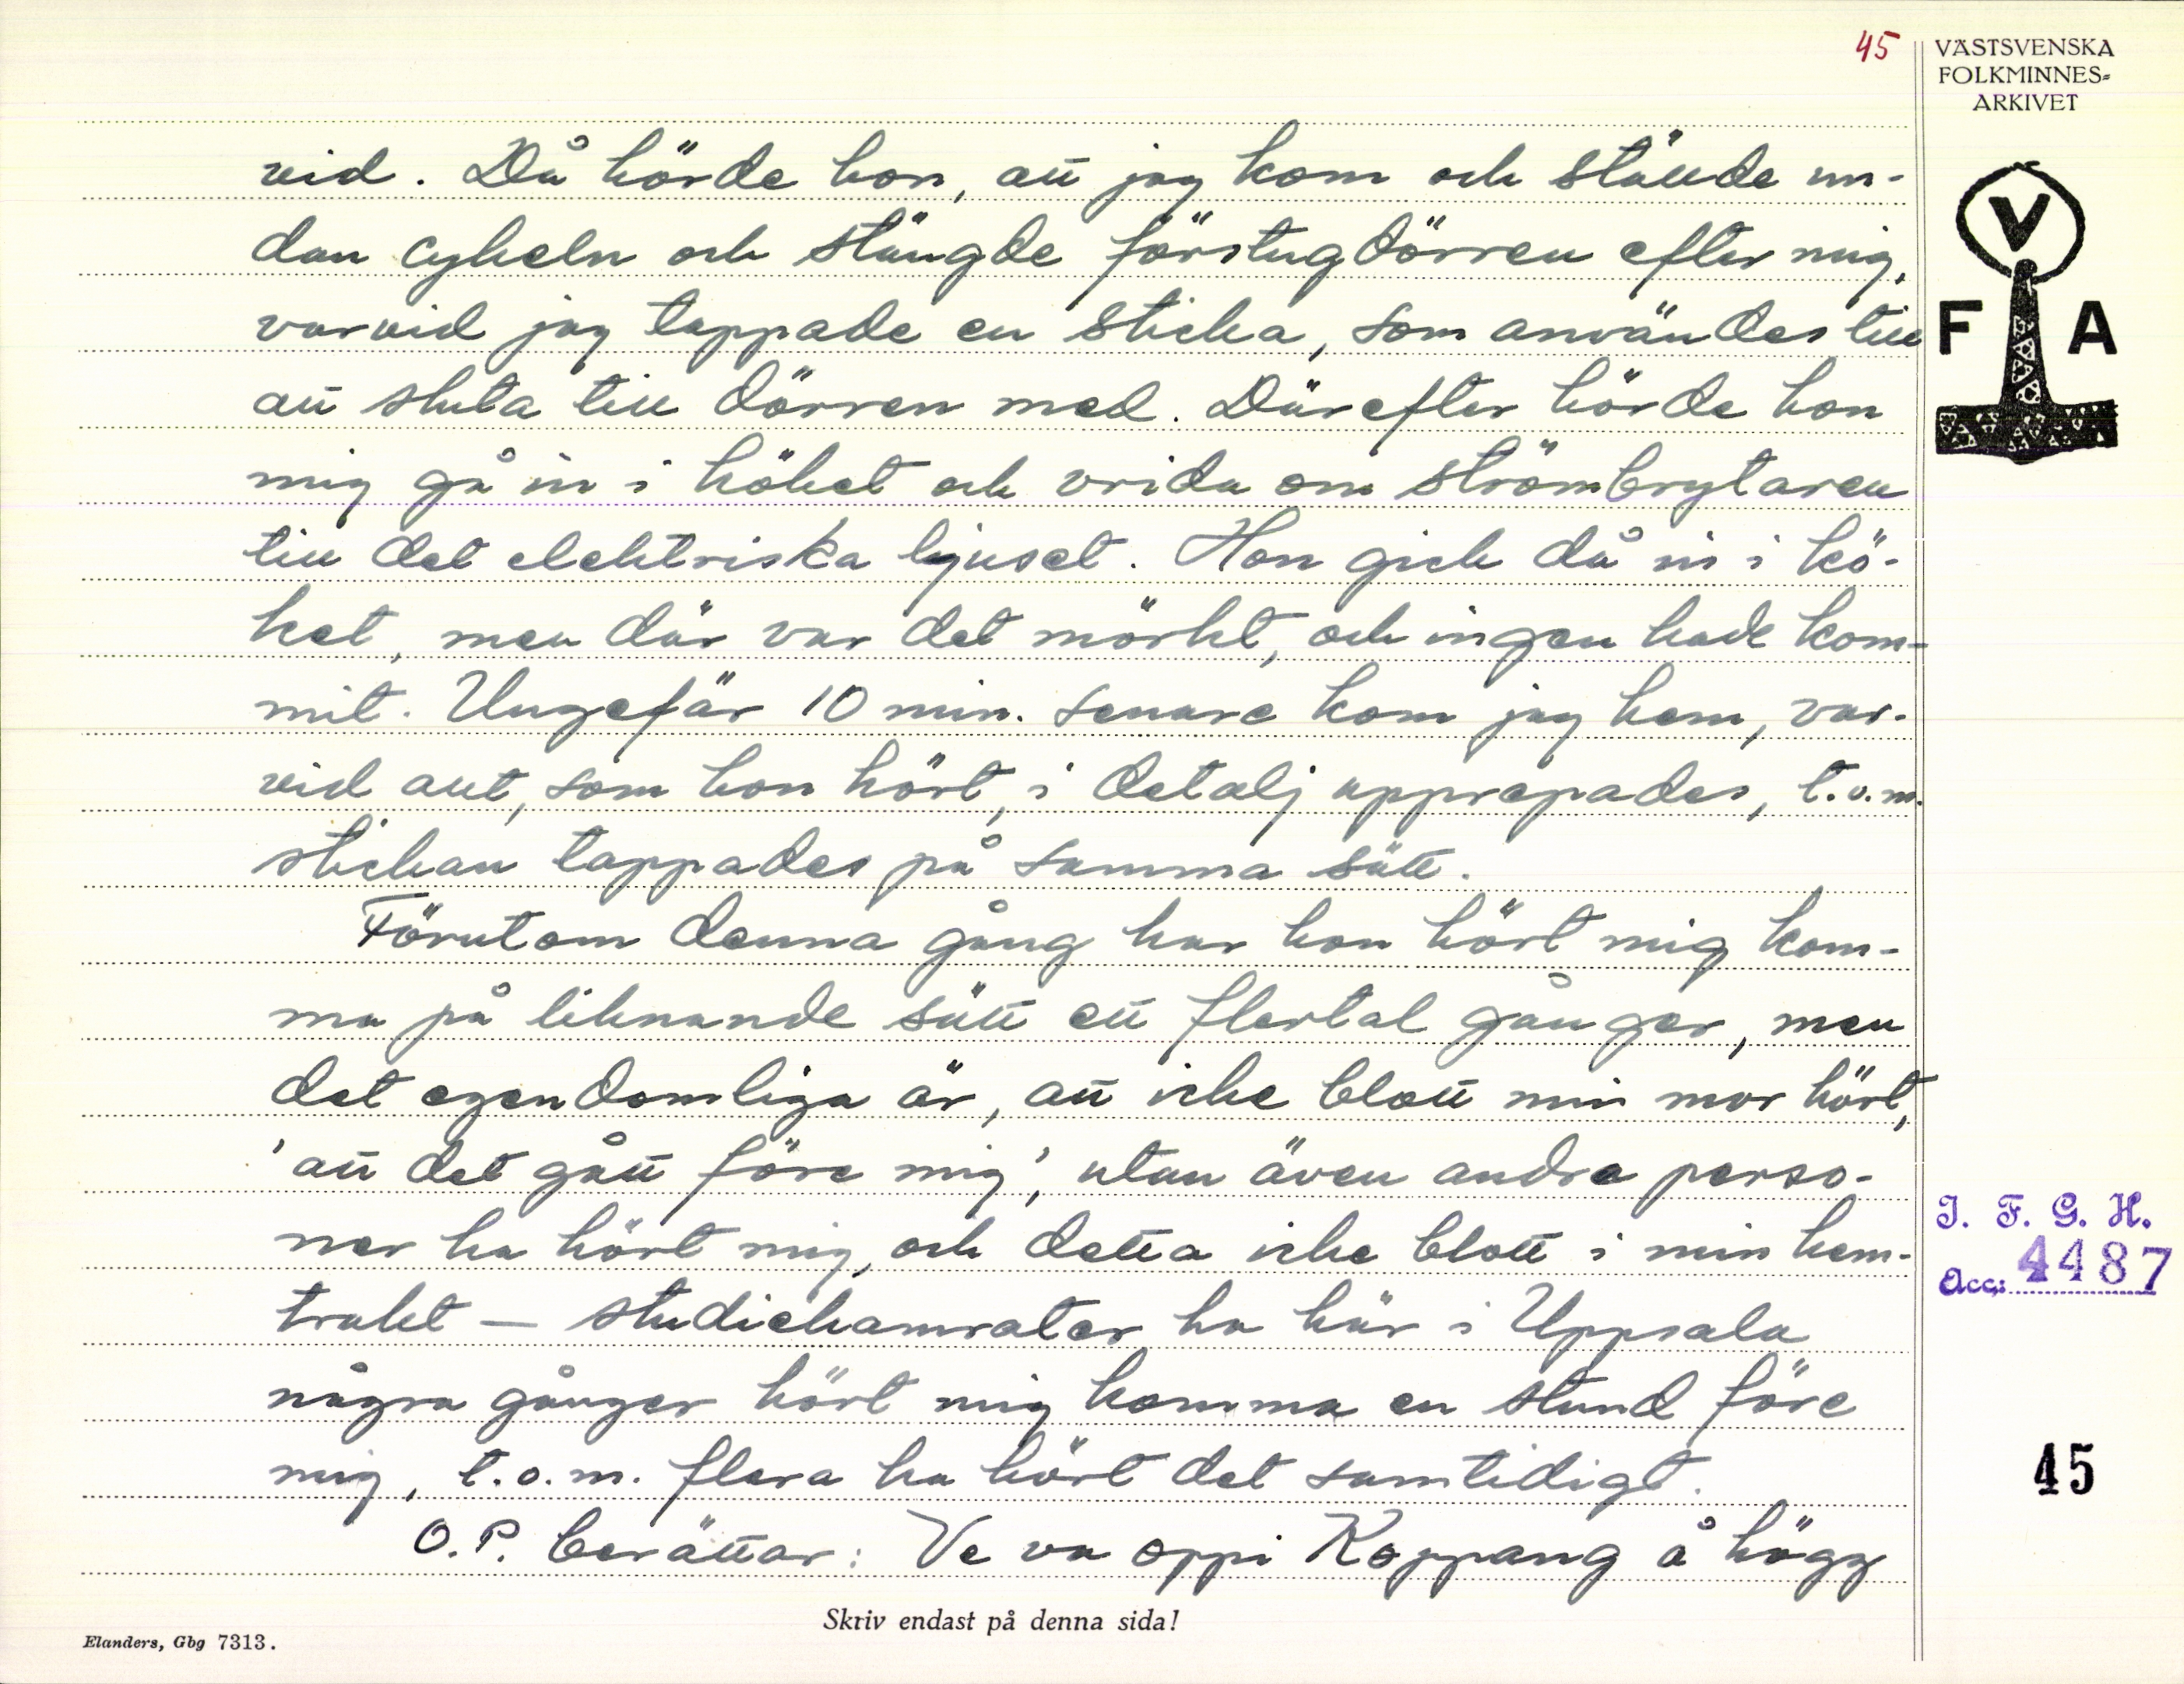 45
VÄSTSVENSKA
FOLKMINNES=
ARKIVET
V
F A
vid. Då hörde hon, att jag kom och ställde un-
dan cykeln och stängde förstugdörren efter mig,
varvid jag tappade en sticka, som användes till
att sluta till dörren med. Därefter hörde hon
mig gå in i köket och vrida om strömbrytaren
till det elektriska ljuset. Hon gick då in i kö-
ket, men där var det mörkt, och ingen hade kom-
mit. Ungefär 10 min. senare kom jag hem, var-
vid allt, som hon hört, i detalj upprepades, t.o.m.
stickan tappades på samma sätt.
Förutom denna gång har hon hört mig kom-
ma på liknande sätt ett flertal gånger, men
det egendomliga är, att icke blott min mor hört,
'att det gått före mig', utan även andra perso-
ner ha hört mig, och detta icke blott i min hem-
trakt — studiekamrater ha här i Uppsala
några gånger hört mig komma en stund före
mig, t.o.m. flera ha hört det samtidigt.
O.P. berättar: Ve va oppi Koppang å högg
I. F. G. H.
Acc: 4487
45
Skriv endast på denna sida!
Elanders, Gbg 7313.